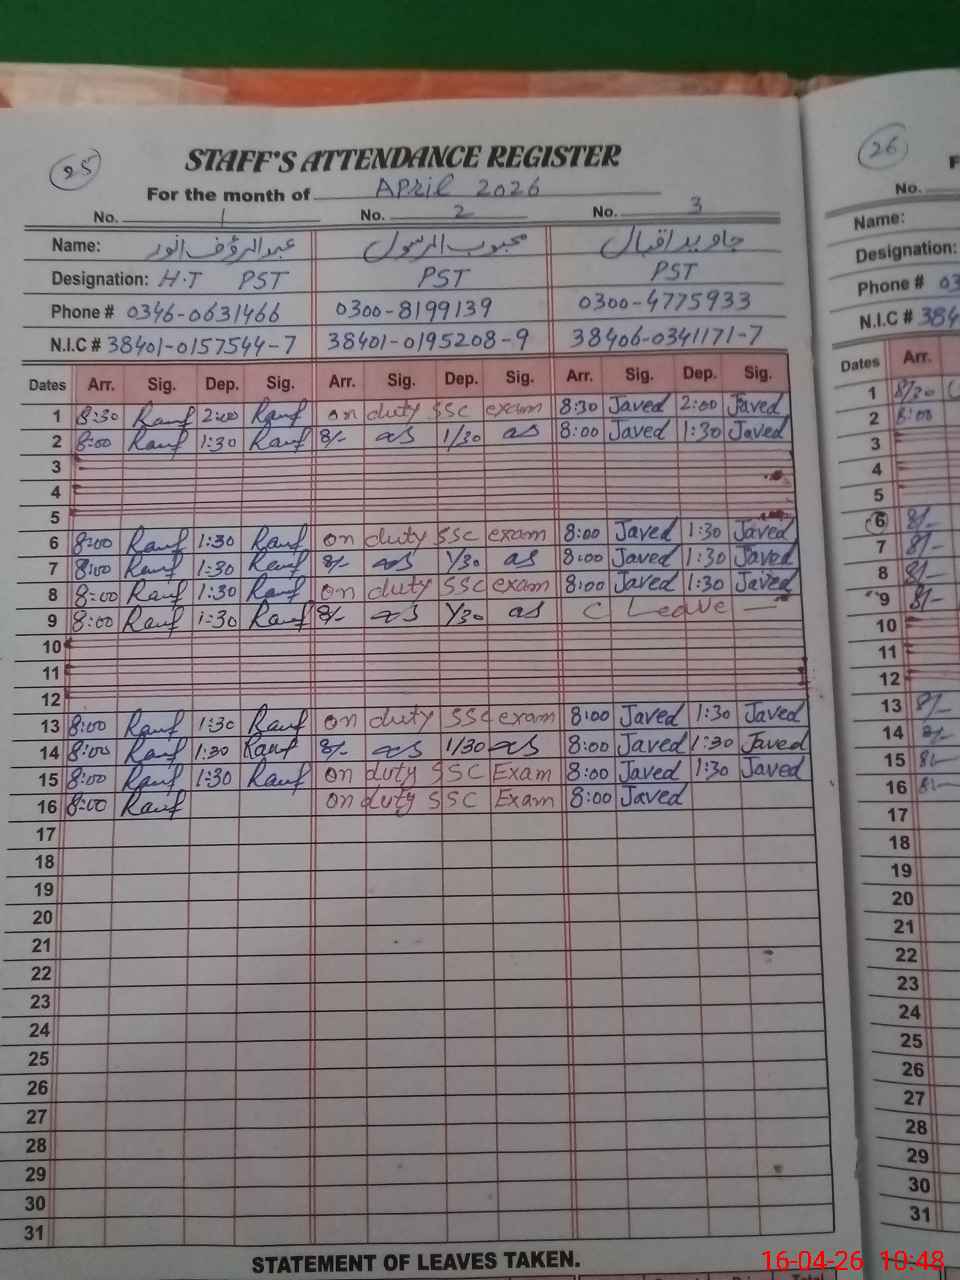 25
STAFF'S ATTENDANCE REGISTER
For the month of April 2026
No. 1 No. 2 No. 3
Name: عبدالرؤف انور محبوب الرسول جاوید اقبال
Designation: H.T PST PST PST
Phone # 0346-0631466 0300-8199139 0300-4775933
N.I.C # 38401-0157544-7 38401-0195208-9 38406-0341171-7
Dates Arr. Sig. Dep. Sig. Arr. Sig. Dep. Sig. Arr. Sig. Dep. Sig.
1 8:30 Rauf 2:00 Rauf on duty SSC exam 8:30 Javed 2:00 Javed
2 8:00 Rauf 1:30 Rauf 8/- as 1/30 as 8:00 Javed 1:30 Javed
3
4
5
6 8:00 Rauf 1:30 Rauf on duty SSC exam 8:00 Javed 1:30 Javed
7 8:00 Rauf 1:30 Rauf 8/- as 1/30 as 8:00 Javed 1:30 Javed
8 8:00 Rauf 1:30 Rauf on duty SSC exam 8:00 Javed 1:30 Javed
9 8:00 Rauf 1:30 Rauf 8/- as 1/30 as C Leave —
10
11
12
13 8:00 Rauf 1:30 Rauf on duty SSC exam 8:00 Javed 1:30 Javed
14 8:00 Rauf 1:30 Rauf 8/- as 1/30 as 8:00 Javed 1:30 Javed
15 8:00 Rauf 1:30 Rauf on duty SSC Exam 8:00 Javed 1:30 Javed
16 8:00 Rauf on duty SSC Exam 8:00 Javed
17
18
19
20
21
22
23
24
25
26
27
28
29
30
31
STATEMENT OF LEAVES TAKEN.
26
No.
Name:
Designation:
Phone # 03
N.I.C # 384
Dates Arr.
1 8/30
2 8:00
3
4
5
6 8/-
7 8/-
8 8/-
9 8/-
10
11
12
13 8/-
14 8/-
15 8/-
16 8/-
17
18
19
20
21
22
23
24
25
26
27
28
29
30
31
16-04-26 10:48